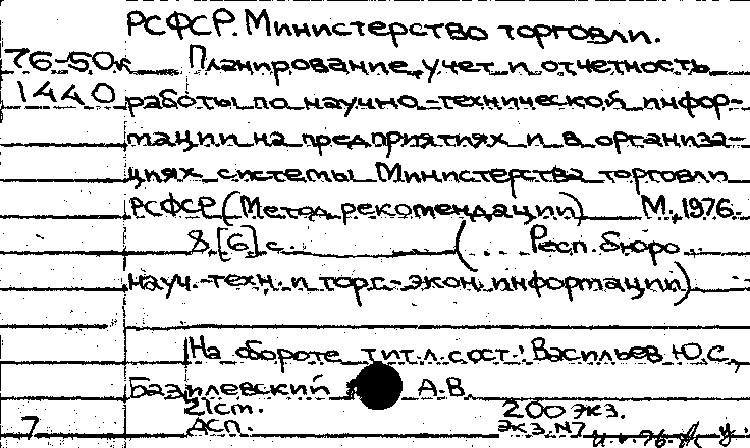 РСФСР. Министерство торговли.
76-50к Планирование, учет и отчетность
1440 работы по научно-технической инфор-
мации на предприятиях и в организа-
циях системы Министерства торговли
РСФСР (Метод. рекомендации) М., 1976.
8,[6] с. (Респ. бюро
науч.-техн. и торг.-экон. информации)
На обороте тит. л. сост.: Васильев Ю.С.,
Базилевский А.В.
21 см. 200 экз.
7 ДСП. экз. №7